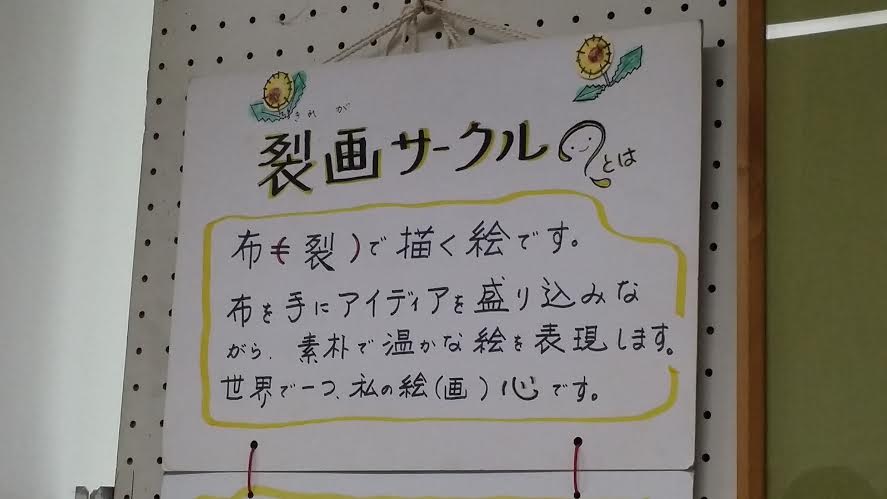 きれ が
裂画サークル?とは
布(=裂)で描く絵です。
布を手にアイディアを盛り込みな
がら、素朴で温かな絵を表現します。
世界で一つ、私の絵(画)心です。